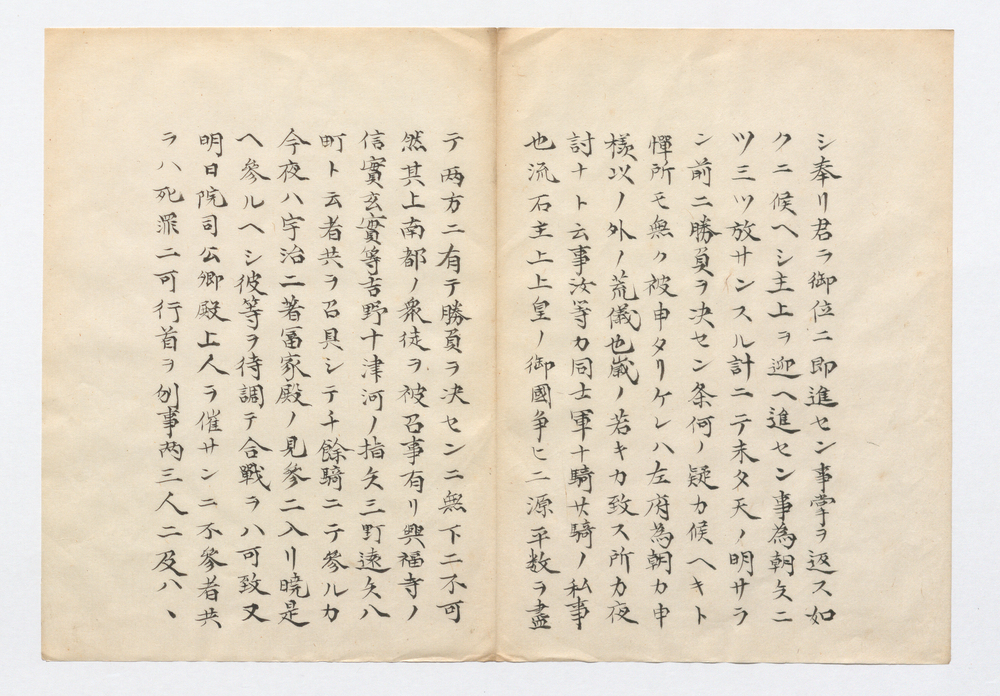 シ奉リ君ヲ御位ニ即進セン事掌ヲ返ス如
クニ候ヘシ主上ヲ迎ヘ進セン事為朝矢二
ツ三ツ放サンスル計ニテ未タ天ノ明サラ
ン前ニ勝負ヲ决セン条何ノ疑カ候ヘキト
憚所モ無ク被申タリケレハ左府為朝カ申
様以ノ外ノ荒儀也嵗ノ若キカ致ス所カ夜
討ナト云事汝等カ同士軍十騎廿騎ノ私事
也流石主上上皇ノ御國争ヒニ源平数ヲ盡
テ两方ニ有テ勝負ヲ决センニ無下ニ不可
然其上南都ノ衆徒ヲ被召事有リ興福寺ノ
信實玄實等吉野十津河ノ指矢三町遠矢八
町ト云者共ヲ召具シテ千餘騎ニテ參ルカ
今夜ハ宇治ニ著冨家殿ノ見參ニ入リ暁是
ヘ參ルヘシ彼等ヲ待調テ合戰ヲハ可致又
明日院司公卿殿上人ヲ催サンニ不參者共
ヲハ死罪ニ可行首ヲ刎事两三人ニ及ハヽ